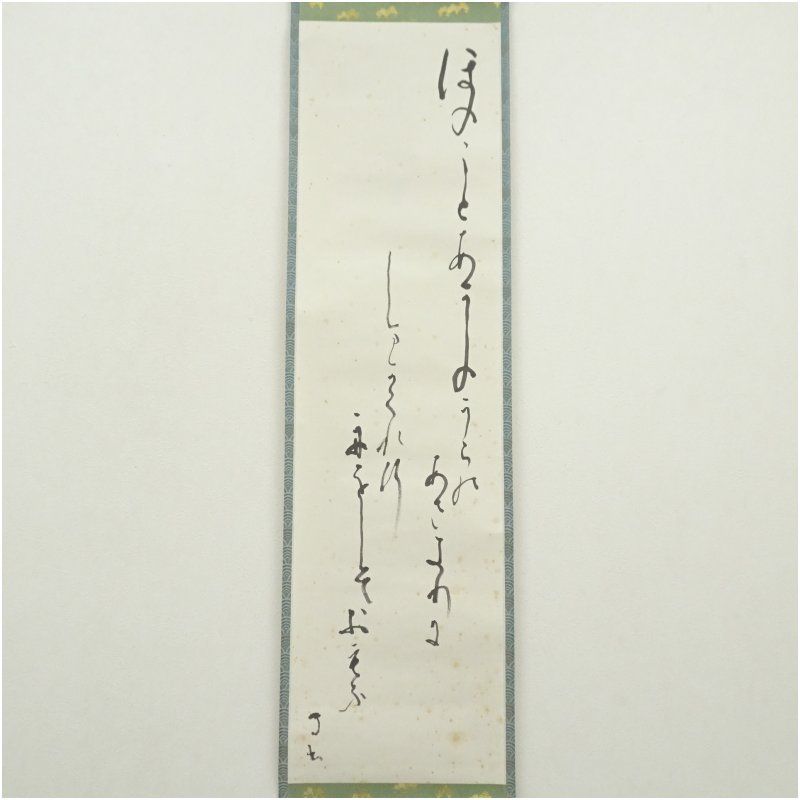 ほのゝとあかしのうらの
あさきりに
しまかくれ行
舟をしそ
おもふ